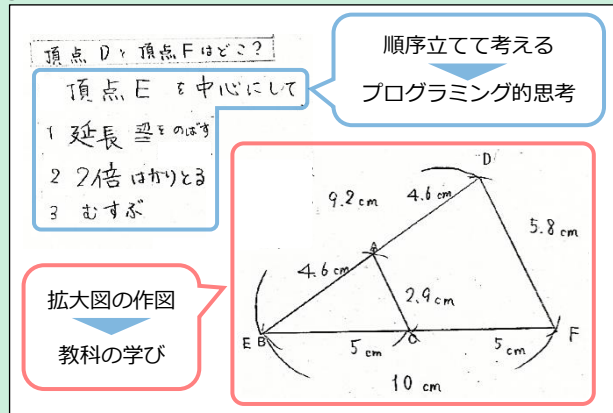 頂点Dと頂点Fはどこ?
頂点Eを中心にして
1 延長 辺をのばす
2 2倍 はかりとる
3 むすぶ
順序立てて考える
プログラミング的思考
拡大図の作図
教科の学び
D
9.2cm
4.6cm
5.8cm
A
4.6cm
2.9cm
E
B
C
F
5cm
5cm
10cm